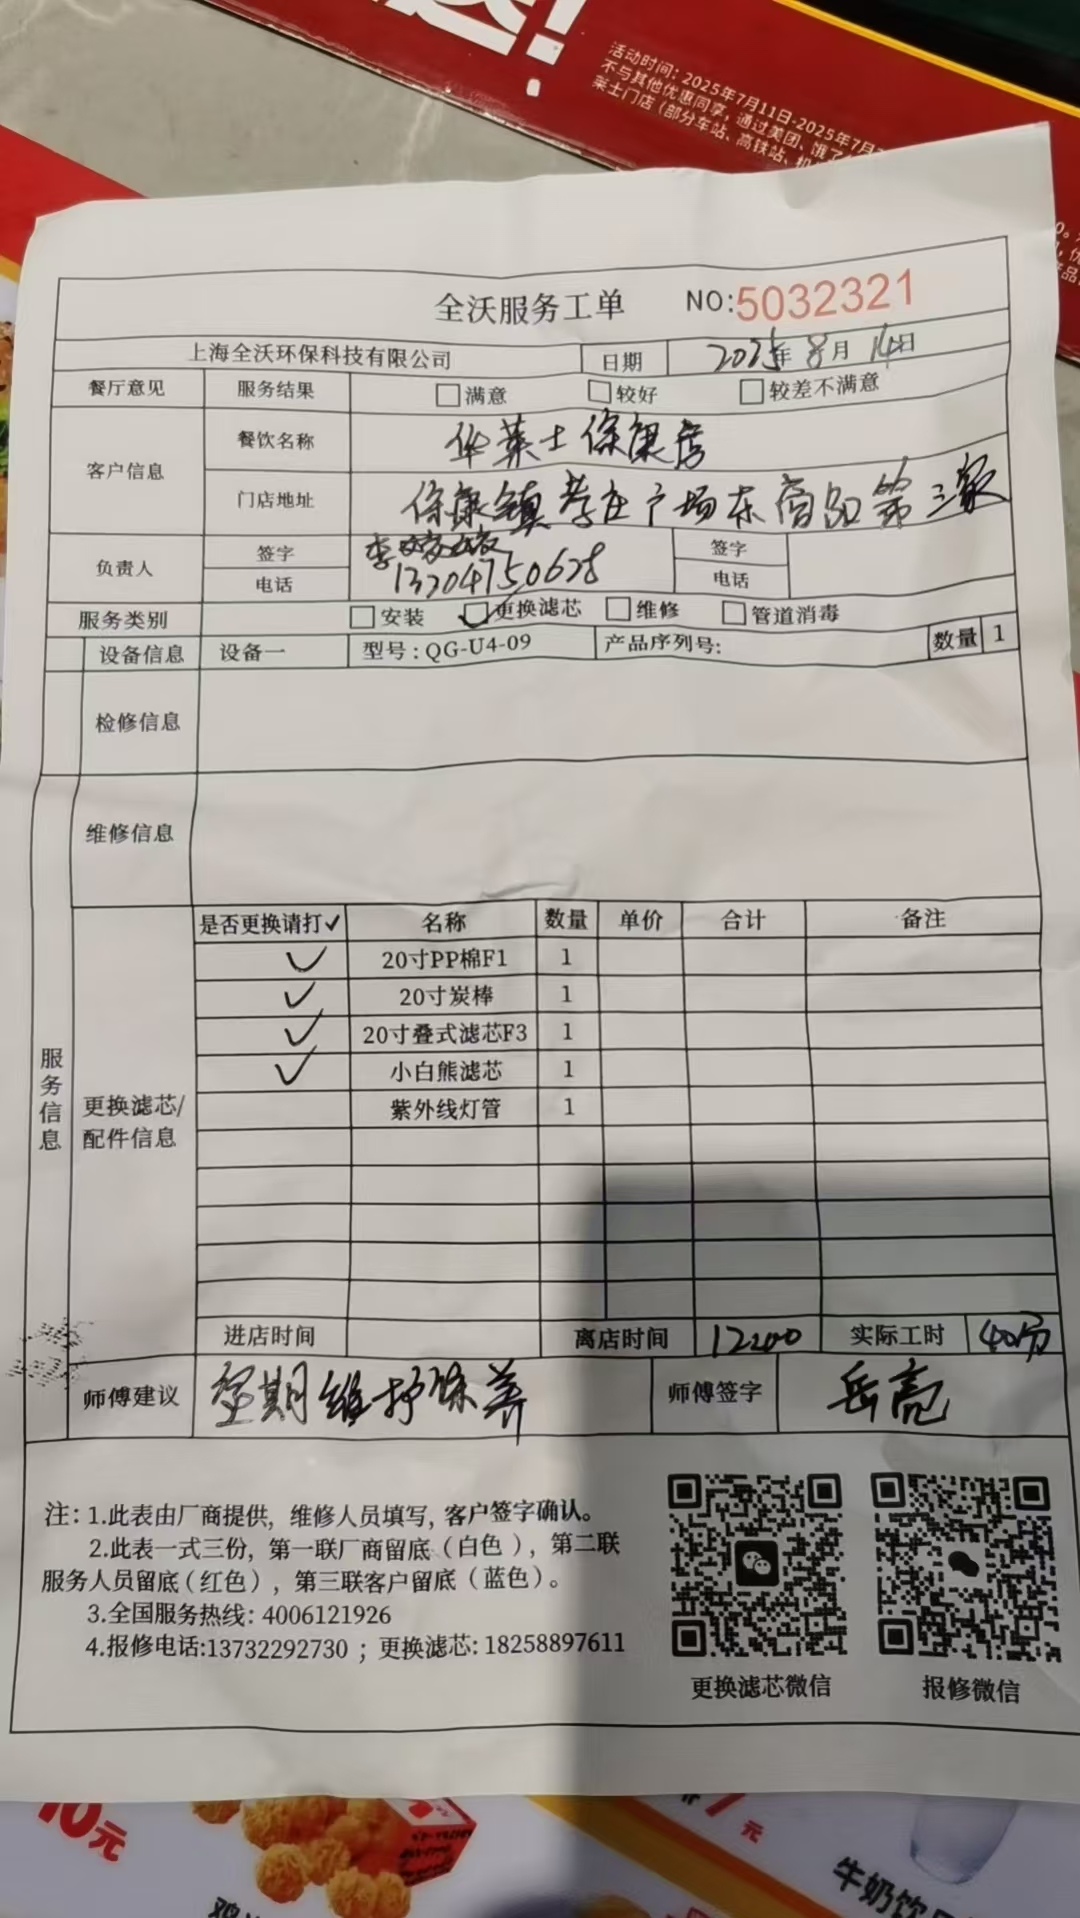 活动时间：2025年7月11日-2025年7月
不与其他优惠同享，通过美团、饿了
莱士门店（部分车站、高铁站、机
全沃服务工单 NO:5032321
上海全沃环保科技有限公司 日期 2025年8月14日
餐厅意见 服务结果 满意 较好 较差不满意
客户信息 餐饮名称 华莱士保康店
门店地址 保康镇孝庄广场东商品第三家
负责人 签字 李 签字
电话 13204750628 电话
服务类别 安装 更换滤芯 维修 管道消毒
设备信息 设备一 型号：QG-U4-09 产品序列号: 数量 1
检修信息
维修信息
服务信息
更换滤芯/
配件信息
是否更换请打✓ 名称 数量 单价 合计 备注
✓ 20寸PP棉F1 1
✓ 20寸炭棒 1
✓ 20寸叠式滤芯F3 1
✓ 小白熊滤芯 1
紫外线灯管 1
进店时间 离店时间 12:00 实际工时 40分
师傅建议 定期维护保养 师傅签字 岳亮
注：1.此表由厂商提供，维修人员填写，客户签字确认。
2.此表一式三份，第一联厂商留底（白色），第二联
服务人员留底（红色），第三联客户留底（蓝色）。
3.全国服务热线：4006121926
4.报修电话:13732292730 ；更换滤芯: 18258897611
更换滤芯微信 报修微信
10元
元
牛奶饮